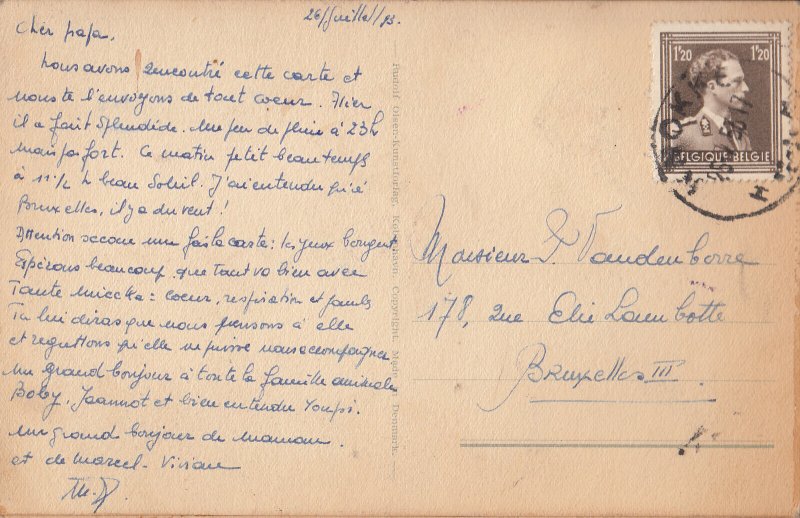 26/Juillet/53.
Cher papa,
Nous avons rencontré cette carte et
nous te l'envoyons de tout coeur. Hier
il a fait splendide. Un peu de pluie à 23h
mais pas fort. Ce matin petit beau temps
à 11 1/2 h beau soleil. J'ai entendu qu'à
Bruxelles, il y a du vent!
Attention secoue une fois la carte: les yeux bougent
Espérons beaucoup que tout va bien avec
Tante : coeur, respiration et jambes
Tu lui diras que nous pensons à elle
et regrettons qu'elle ne puisse nous accompagner
Un grand bonjour à toute la famille animale
Boby, Jeannot et bien entendu Youpi.
Un grand bonjour de maman.
et de Marcel - Viviane
Rudolf Olsen-Kunstforlag, København. Copyright. Made Denmark.
1F20 1F20
BELGIQUE-BELGIE
KNOKKE
Monsieur J. Vandenborre
178, rue Elie Lambotte
Bruxelles III